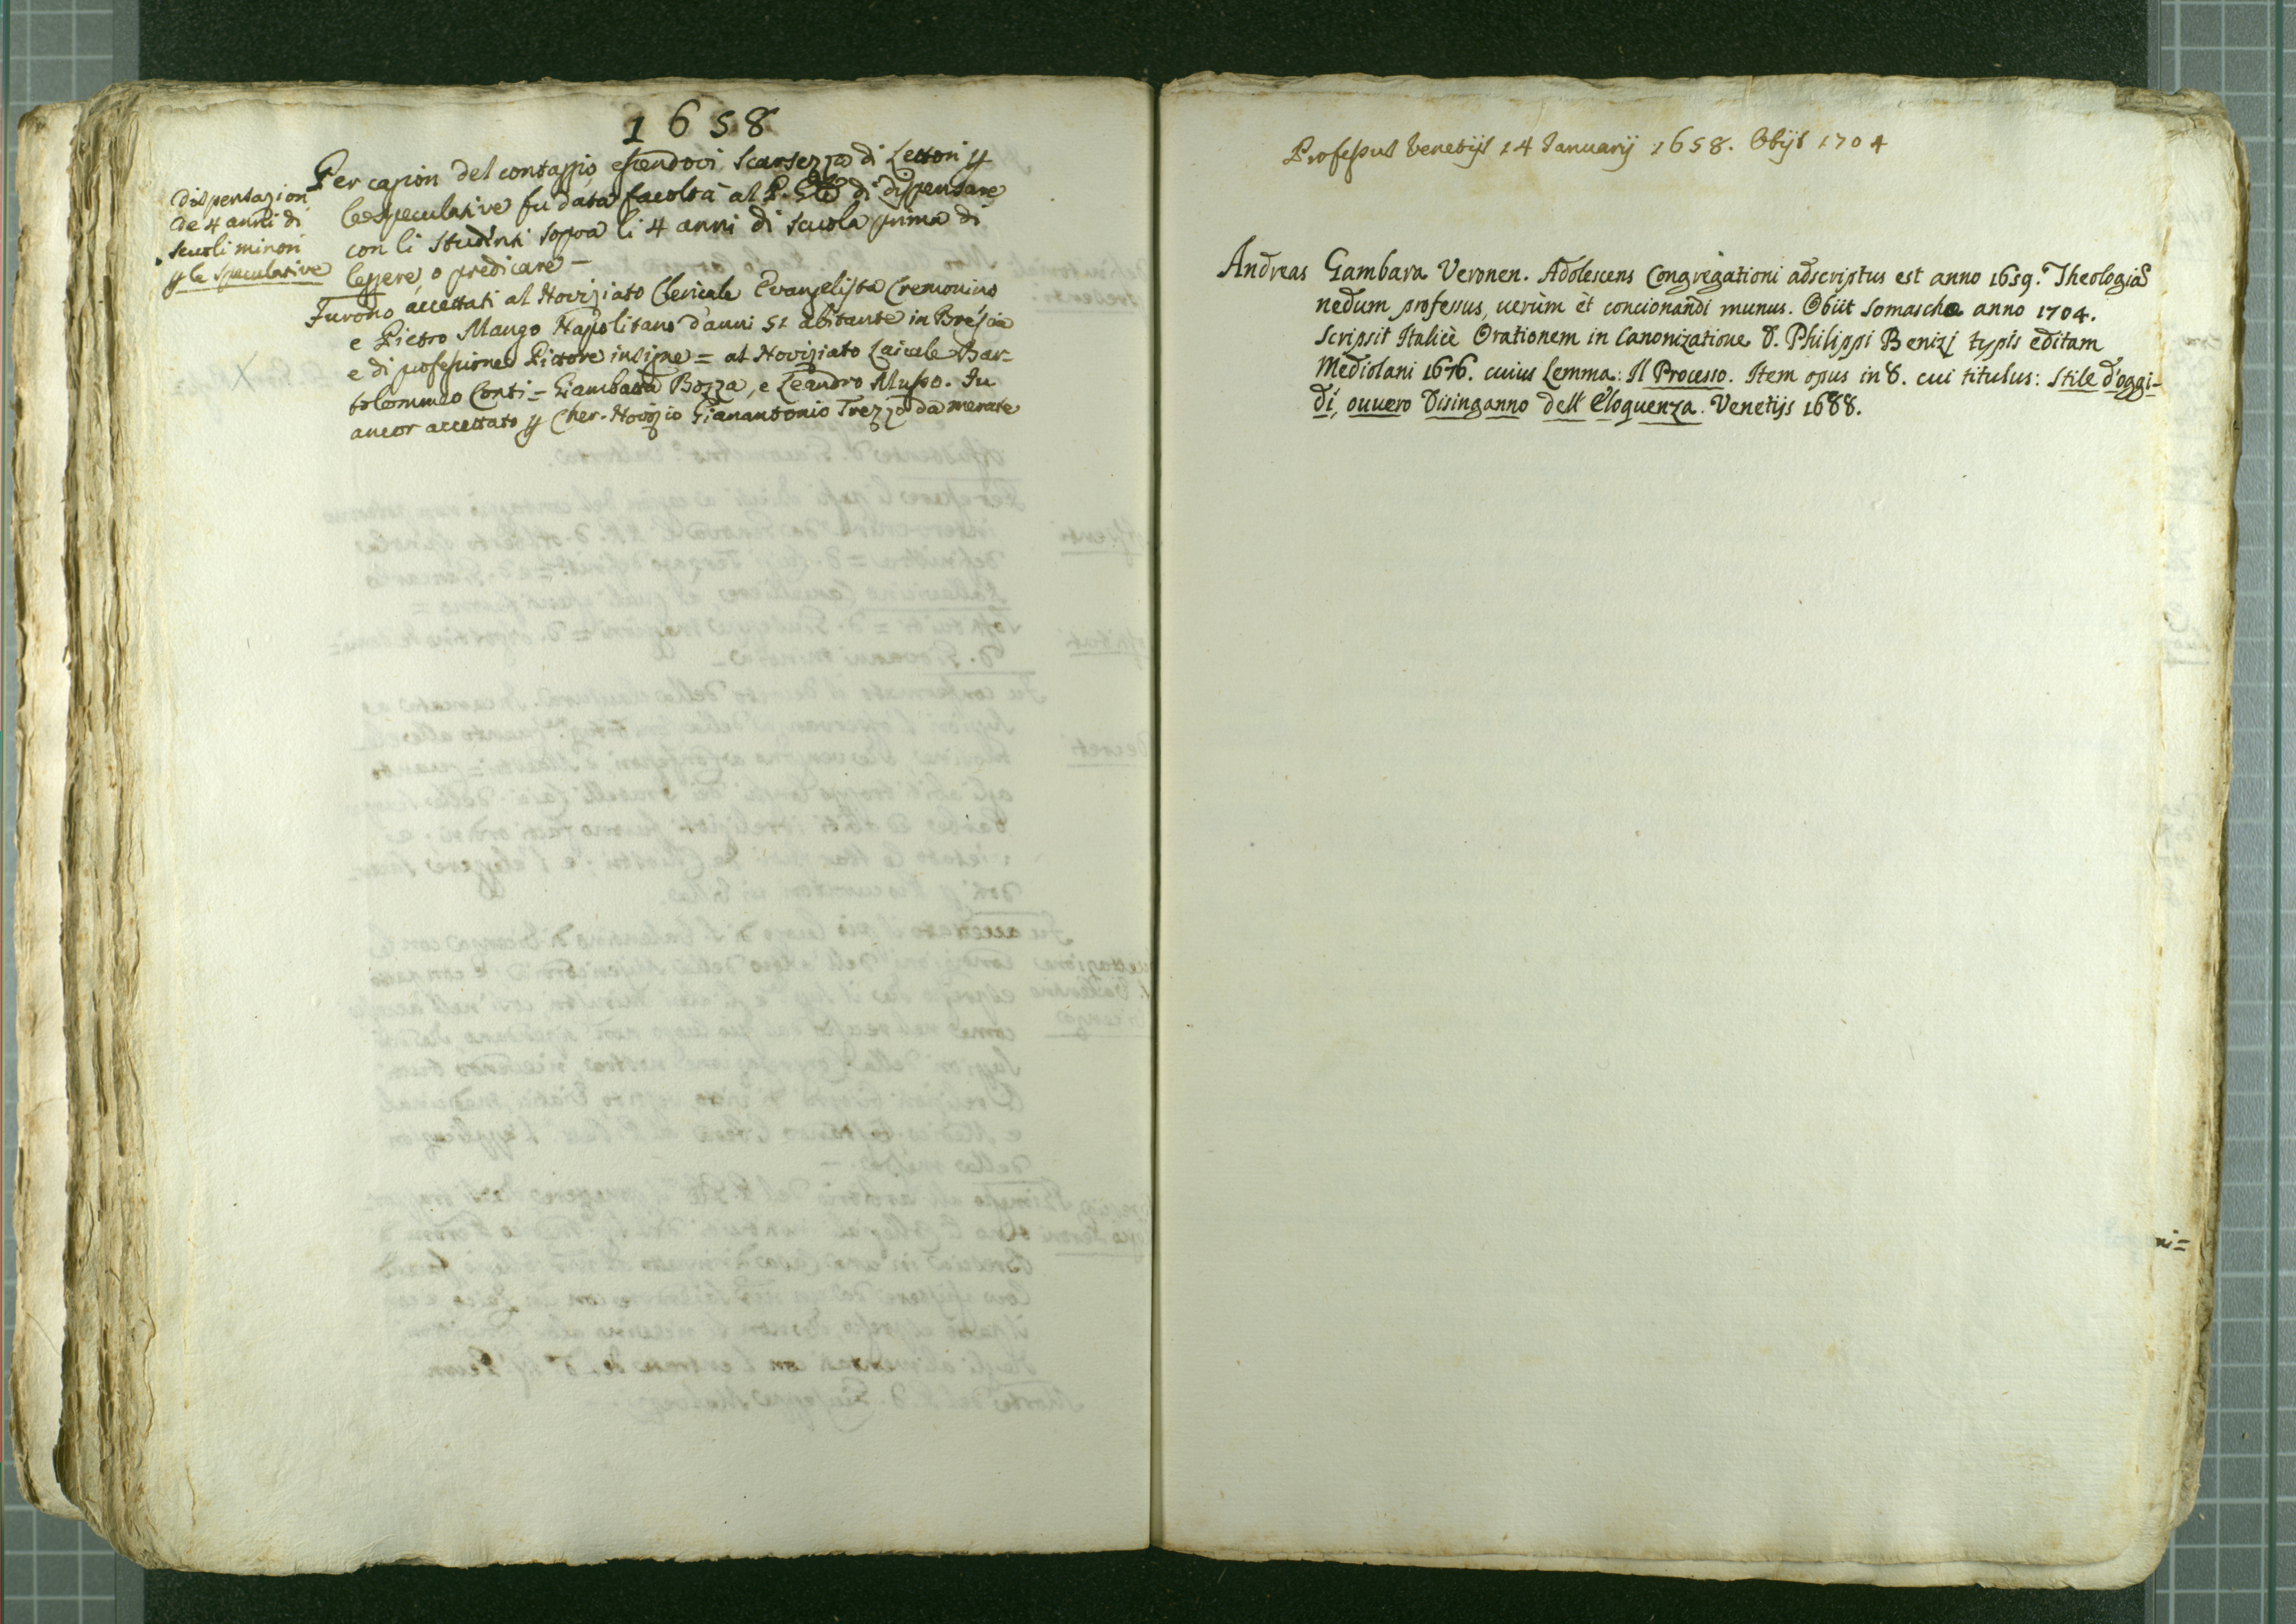 1658
Per cagion del contaggio, essendovi scarsezza di Lettori p
le speculative fu data facoltà al P. Gle di dispensare
con li studenti sopra li 4 anni di scuola prima di
leggere, o predicare –
Dispensazion
de 4 anni di
scuoli minori
p le speculative
Furono accettati al Noviziato Clericale Evangelista Cremonino
e Pietro Mango Napolitano d'anni 51 abitante in Brescia
e di professione Pittore insigne = al Noviziato Laicale Bar=
tolommeo Conti = Giambatta Bozza, e Leandro Musso. Fu
ancor accettato p Cher. Novizio Gianantonio Trezzo da merate
Professus Venetijs 14 Januarij 1658. Obijt 1704
Andreas Gambara Veronen. Adolescens Congregationi adscriptus est anno 1659. Theologiã
nedum professus, uerùm èt concionandi munus. Obiit Somaschæ anno 1704.
Scripsit Italicè Orationem in Canonizatione S. Philippi Benizj typis editam
Mediolani 1676. cuius Lemma: Il Processo. Item opus in 8. cui titulus: Stile d'oggi-
dì, ouuero Disinganno dell'Eloquenza. Venetijs 1688.
ni=